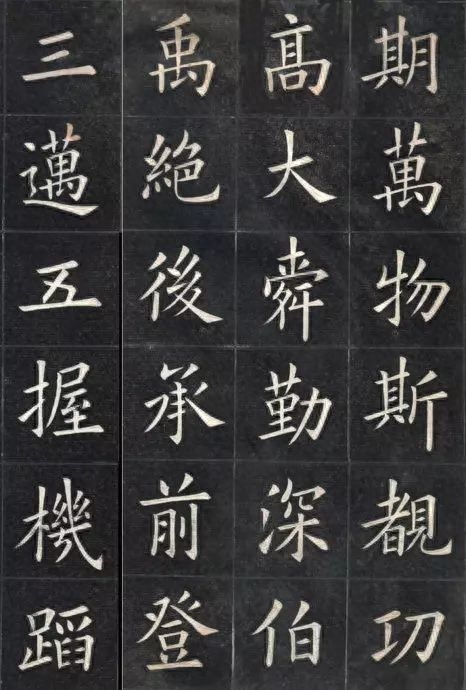 期萬物斯覩功
髙大舜勤深伯
禹絶後承前登
三邁五握機蹈